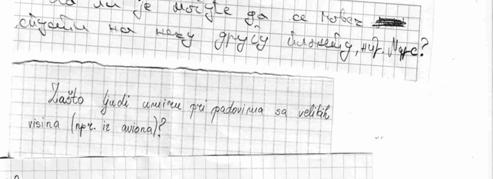 ли је могуће да се човек
спусти на неку другу планету, нпр. Марс?
Zašto ljudi umiru pri padovima sa velikih
visina (npr. iz aviona)?